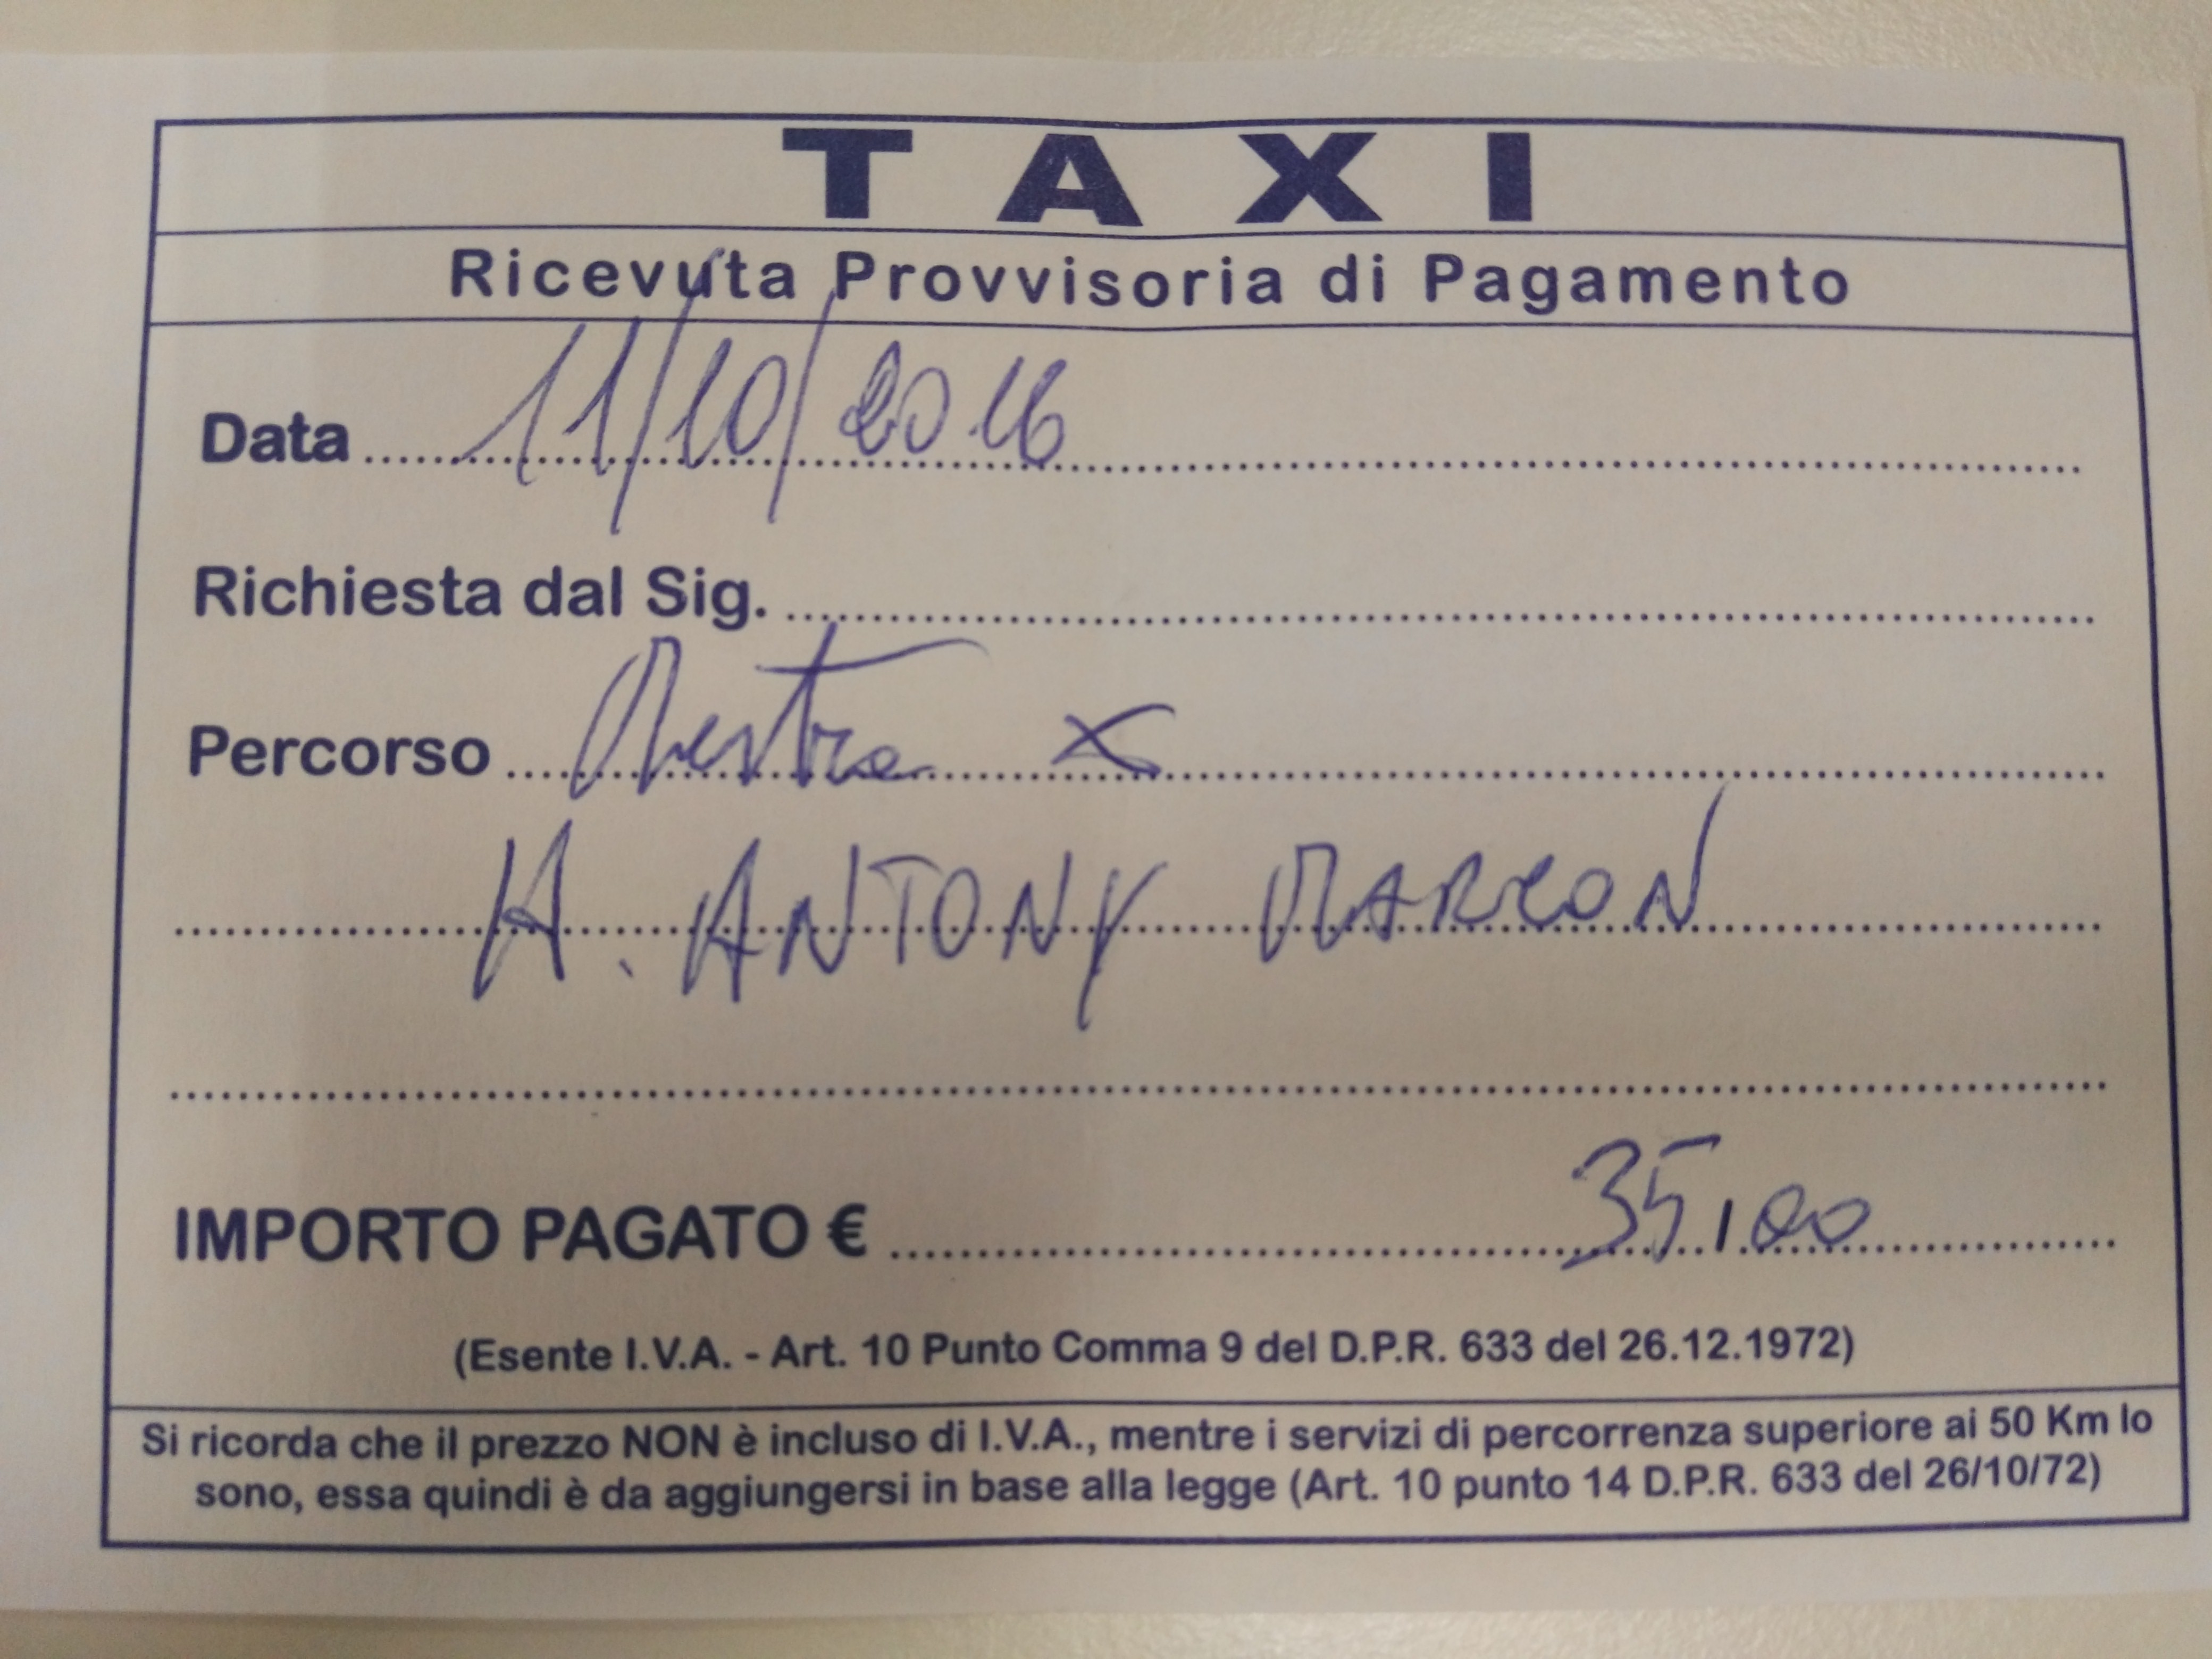 TAXI
Ricevuta Provvisoria di Pagamento
Data 11/10/2016
Richiesta dal Sig.
Percorso Mestre x
H. ANTONY MARCON
IMPORTO PAGATO € 35,00
(Esente I.V.A. - Art. 10 Punto Comma 9 del D.P.R. 633 del 26.12.1972)
Si ricorda che il prezzo NON è incluso di I.V.A., mentre i servizi di percorrenza superiore ai 50 Km lo
sono, essa quindi è da aggiungersi in base alla legge (Art. 10 punto 14 D.P.R. 633 del 26/10/72)